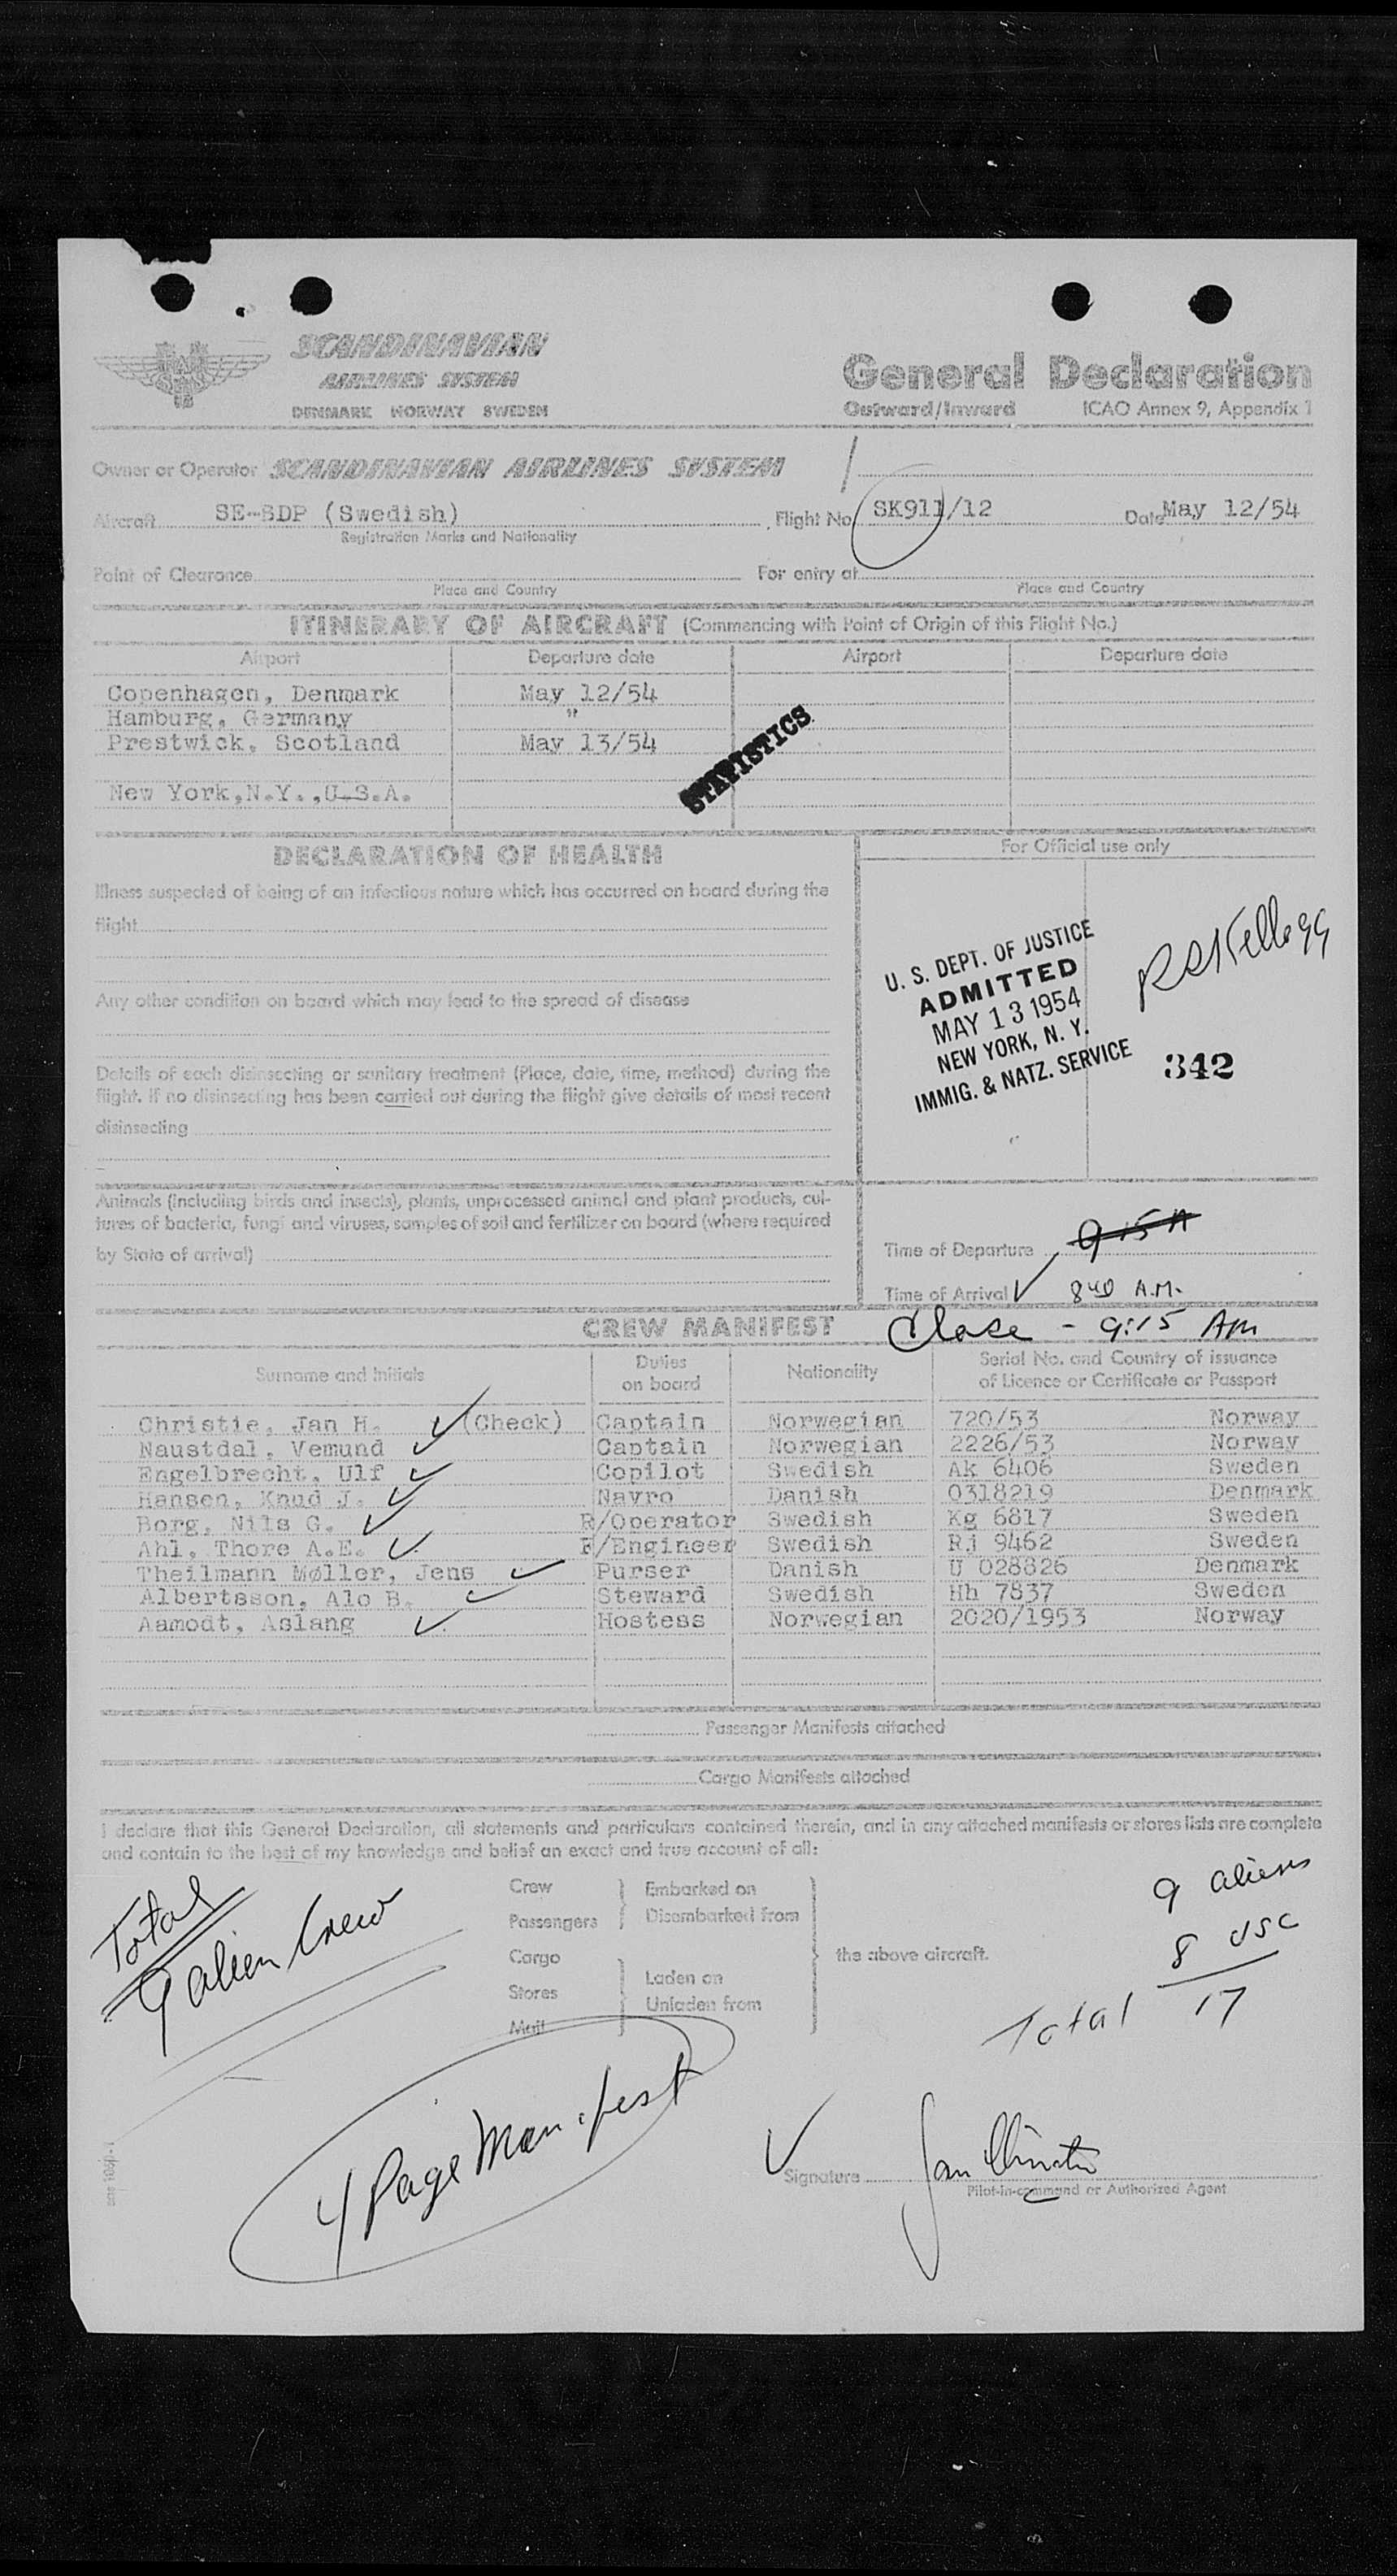 SCANDINAVIAN
AIRLINES SYSTEM
DENMARK NORWAY SWEDEN
General Declaration
Outward/Inward ICAO Annex 9, Appendix 1
Owner or Operator SCANDINAVIAN AIRLINES SYSTEM
Aircraft SE-BDP (Swedish) Flight No SK911/12 Date May 12/54
Registration Marks and Nationality
Point of Clearance For entry at
Place and Country Place and Country
ITINERARY OF AIRCRAFT (Commencing with Point of Origin of this Flight No.)
Airport Departure date Airport Departure date
Copenhagen, Denmark May 12/54
Hamburg, Germany "
Prestwick, Scotland May 13/54
STATISTICS
New York,N.Y.,U.S.A.
DECLARATION OF HEALTH
Illness suspected of being of an infectious nature which has occurred on board during the
flight
Any other condition on board which may lead to the spread of disease
Details of each disinsecting or sanitary treatment (Place, date, time, method) during the
flight. If no disinsecting has been carried out during the flight give details of most recent
disinsecting
Animals (including birds and insects), plants, unprocessed animal and plant products, cul-
tures of bacteria, fungi and viruses, samples of soil and fertilizer on board (where required
by State of arrival)
For Official use only
U. S. DEPT. OF JUSTICE
ADMITTED
MAY 13 1954
NEW YORK, N. Y.
IMMIG. & NATZ. SERVICE
Kellogg
342
Time of Departure 9 15 A
Time of Arrival 840 A.M.
CREW MANIFEST Close - 9:15 Am
Surname and Initials Duties on board Nationality Serial No. and Country of issuance
of Licence or Certificate or Passport
Christie, Jan H. (Check) Captain Norwegian 720/53 Norway
Naustdal, Vemund Captain Norwegian 2226/53 Norway
Engelbrecht, Ulf Copilot Swedish Ak 6406 Sweden
Hansen, Knud J. Navro Danish 0318219 Denmark
Borg, Nils G. R/Operator Swedish Kg 6817 Sweden
Ahl, Thore A.E. F/Engineer Swedish Rj 9462 Sweden
Theilmann Møller, Jens Purser Danish U 028826 Denmark
Albertsson, Alo B. Steward Swedish Hh 7837 Sweden
Aamodt, Aslang Hostess Norwegian 2020/1953 Norway
Passenger Manifests attached
Cargo Manifests attached
I declare that this General Declaration, all statements and particulars contained therein, and in any attached manifests or stores lists are complete
and contain to the best of my knowledge and belief an exact and true account of all:
Crew Embarked on
Passengers Disembarked from
Cargo the above aircraft.
Stores Laden on
Mail Unladen from
Total
9 alien Crew
9 aliens
8 USC
Total 17
4 Page Manifest
Signature Jan Christie
Pilot-in-command or Authorized Agent